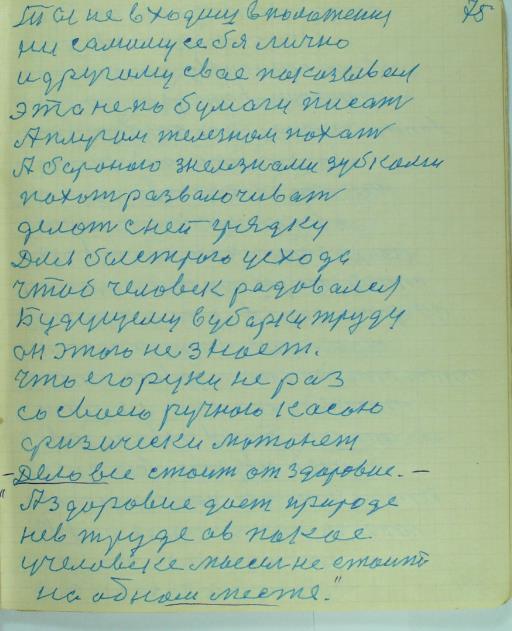 75
Ты не входиш в положении
ни самому себя лично
и другому свае показывал
эта не по бумаги писат
А плугом железном похат
А бароною зжелезнами зубками
похот развалочиват
делат с ней грядку
Для быстрого усхода
Чтоб человек радовался
Будущему в убарки труду
он этого не знает.
Что его руки не раз
со своею ручною касою
физически мотонет
– Дело все стоит от здоровие. –
"А здоровие дает природе
не в труде а в покое
учеловеке мысел не стоит
на одном месте."